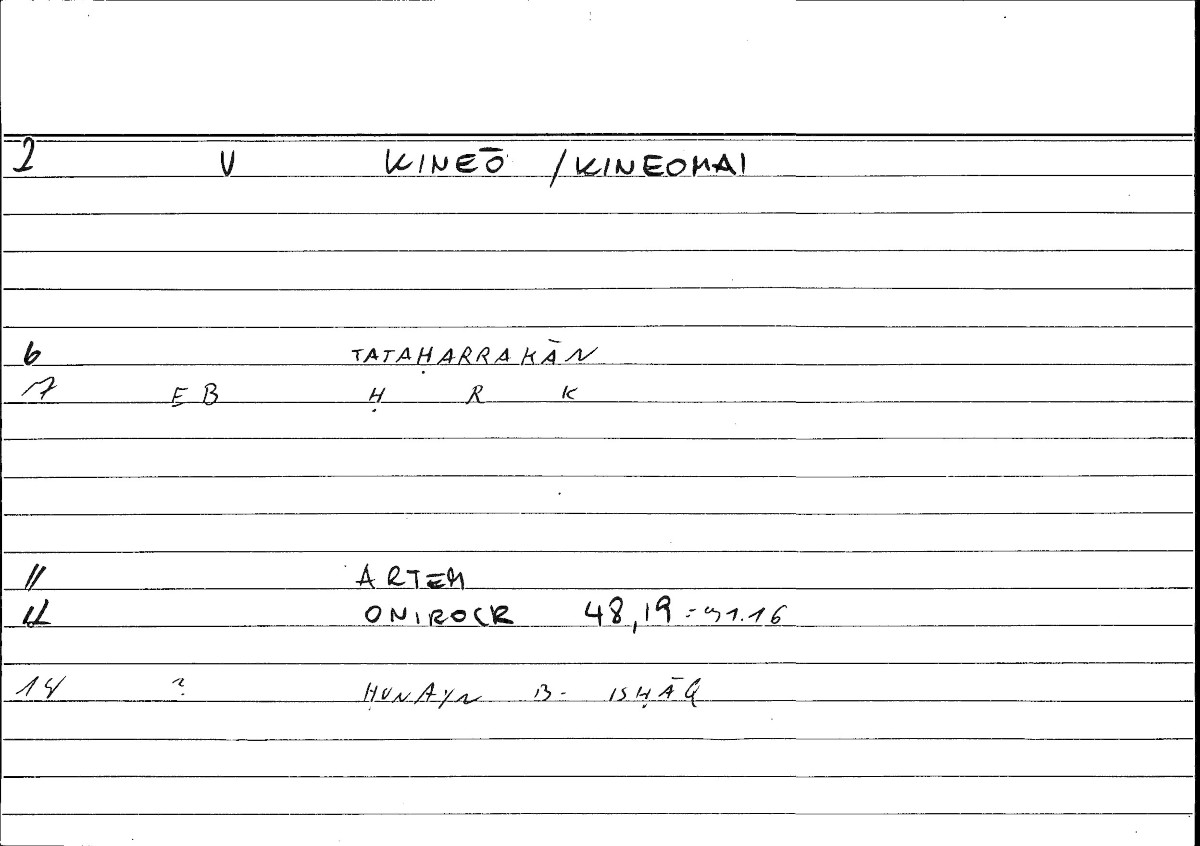 2 V KINEŌ /KINEOMAI
6 TATAḤARRAKĀN
7 EB Ḥ R K
11 ARTEM
12 ONIROCR 48,19 = 91.16
14 ? ḤUNAYN B- ISḤĀQ